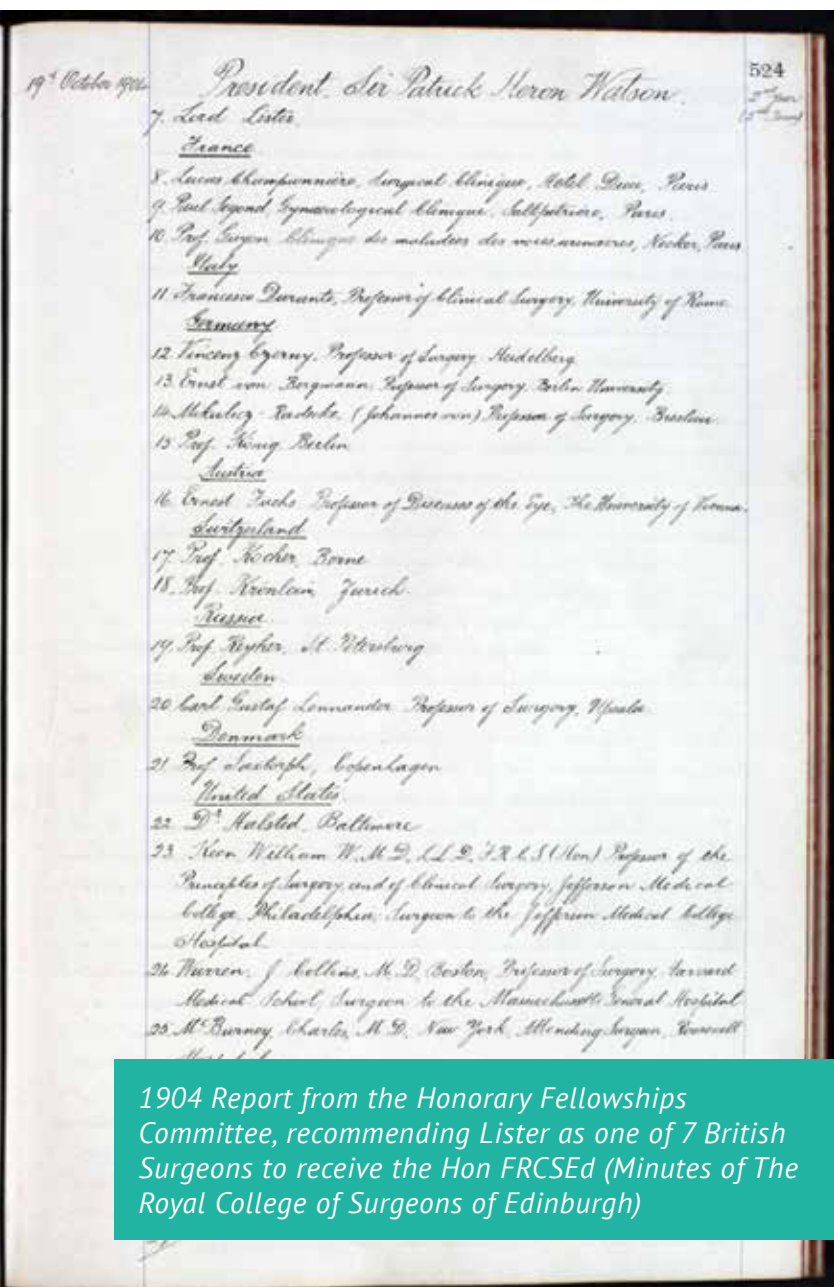 19th October 1904
President. Sir Patrick Heron Watson.
524
2nd Year
7. Lord Lister.
France.
8. Lucas Championnière, Surgical Clinique, Hotel Dieu, Paris
9. Paul Segond, Gynaecological Clinique, Salpêtrière, Paris.
10. Prof. Guyon Clinique des maladies des voies urinaires, Necker, Paris
Italy
11. Francesco Durante, Professor of Clinical Surgery, University of Rome.
Germany
12. Vincenz Czerny, Professor of Surgery Heidelberg
13. Ernst von Bergmann, Professor of Surgery, Berlin University
14. Mikulicz-Radecki, (Johannes von) Professor of Surgery, Breslau
15. Prof. König Berlin
Austria
16. Ernest Fuchs Professor of Diseases of the Eye, The University of Vienna.
Switzerland
17. Prof. Kocher, Berne
18. Prof. Krönlein, Zurich.
Russia.
19. Prof. Reyher, St. Petersburg
Sweden.
20. Carl Gustaf Lennander Professor of Surgery, Upsala
Denmark
21. Prof. Saxtorph, Copenhagen
United States.
22. Dr Halsted Baltimore
23. Keen William W., M.D., LL.D., F.R.C.S (Hon) Professor of the
Principles of Surgery, and of Clinical Surgery, Jefferson Medical
College, Philadelphia; Surgeon to the Jefferson Medical College
Hospital.
24. Warren, J Collins, M.D., Boston, Professor of Surgery, Harvard
Medical School, Surgeon to the Massachusetts General Hospital
25. McBurney, Charles, M.D., New York, Attending Surgeon, Roosevelt
1904 Report from the Honorary Fellowships
Committee, recommending Lister as one of 7 British
Surgeons to receive the Hon FRCSEd (Minutes of The
Royal College of Surgeons of Edinburgh)